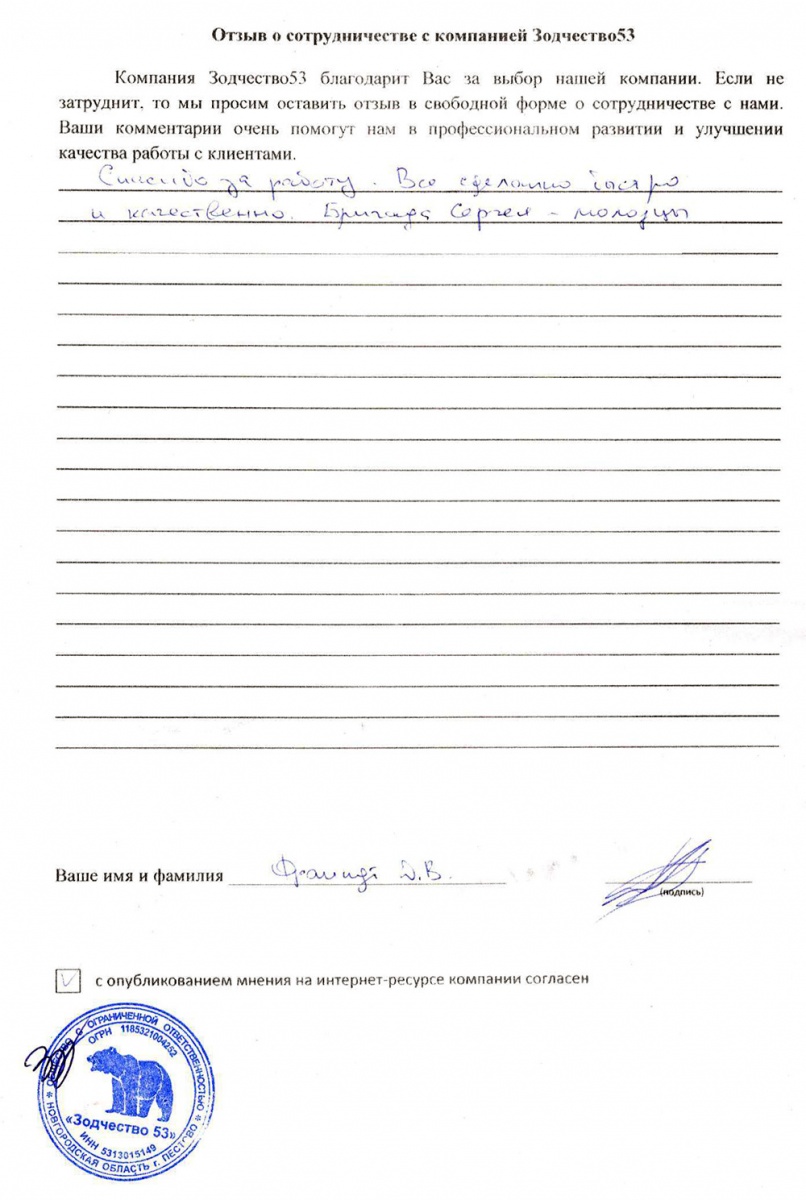 Отзыв о сотрудничестве с компанией Зодчество53
Компания Зодчество53 благодарит Вас за выбор нашей компании. Если не
затруднит, то мы просим оставить отзыв в свободной форме о сотрудничестве с нами.
Ваши комментарии очень помогут нам в профессиональном развитии и улучшении
качества работы с клиентами.
Спасибо за работу. Все сделано быстро
и качественно. Бригада Сергея - молодцы
Ваше имя и фамилия Д.В.
(подпись)
с опубликованием мнения на интернет-ресурсе компании согласен
ОБЩЕСТВО С ОГРАНИЧЕННОЙ ОТВЕТСТВЕННОСТЬЮ
ОГРН 1185321004252
«Зодчество 53»
ИНН 5313015149
* НОВГОРОДСКАЯ ОБЛАСТЬ г. ПЕСТОВО *